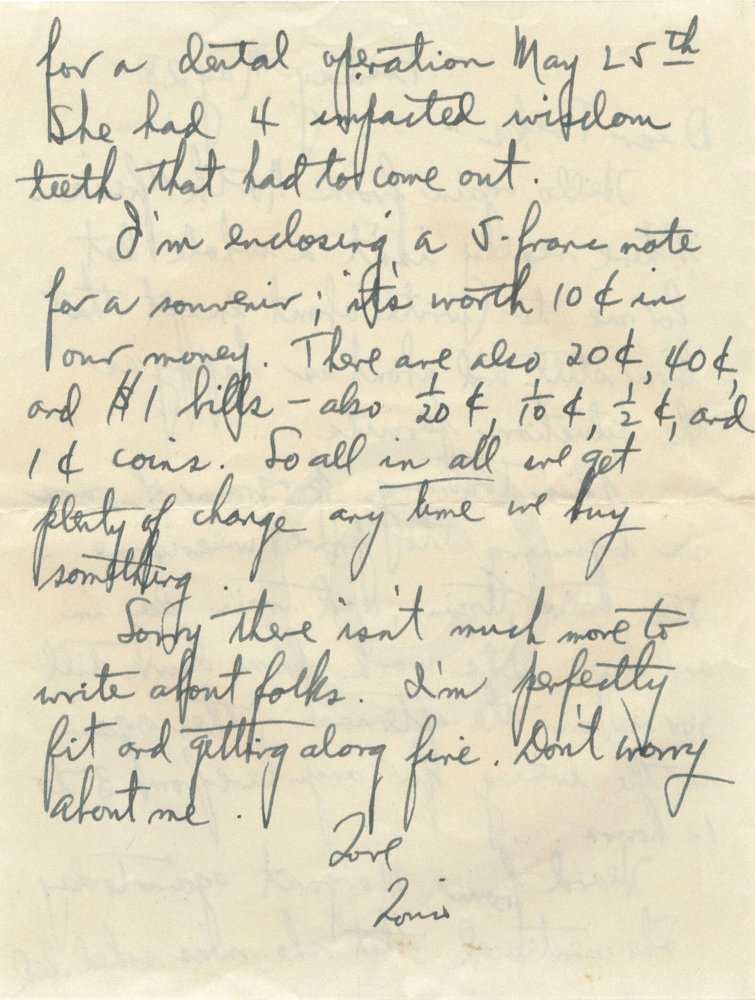 for a dental operation May 25th
She had 4 impacted wisdom
teeth that had to come out.
I'm enclosing a 5-franc note
for a souvenir; it's worth 10¢ in
our money. There are also 20¢, 40¢,
and $1 bills - also 1/20 ¢, 1/10 ¢, 1/2 ¢, and
1¢ coins. So all in all we get
plenty of change any time we buy
something.
Sorry there isn't much more to
write about folks. I'm perfectly
fit and getting along fine. Don't worry
about me.
Love
Louis